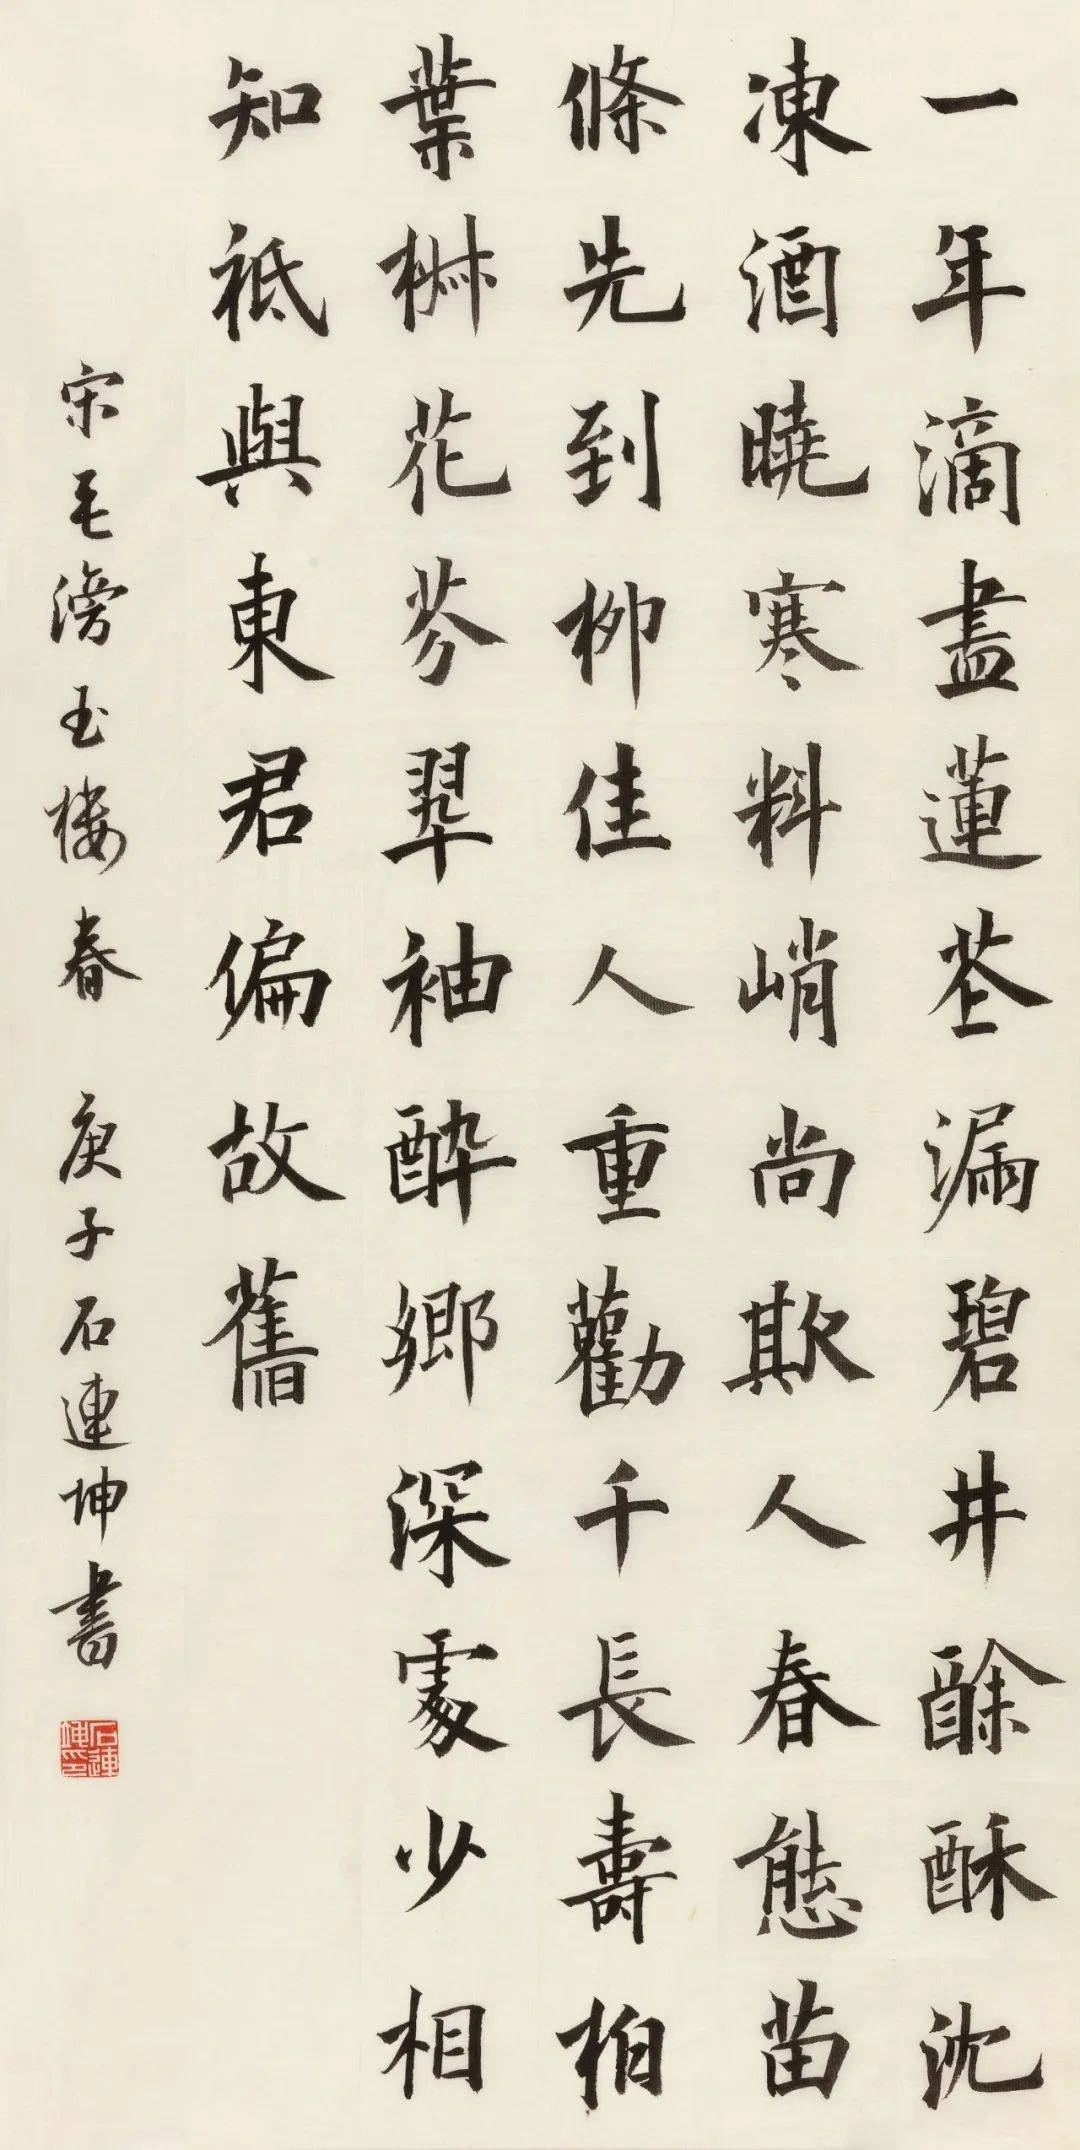 一年滴盡蓮花漏碧井酴酥沈
凍酒曉寒料峭尚欺人春態苗
條先到柳佳人重勸千長壽柏
葉椒花芬翠袖醉鄉深處少相
知祗與東君偏故舊
宋毛滂玉樓春 庚子石連坤書
石連坤印